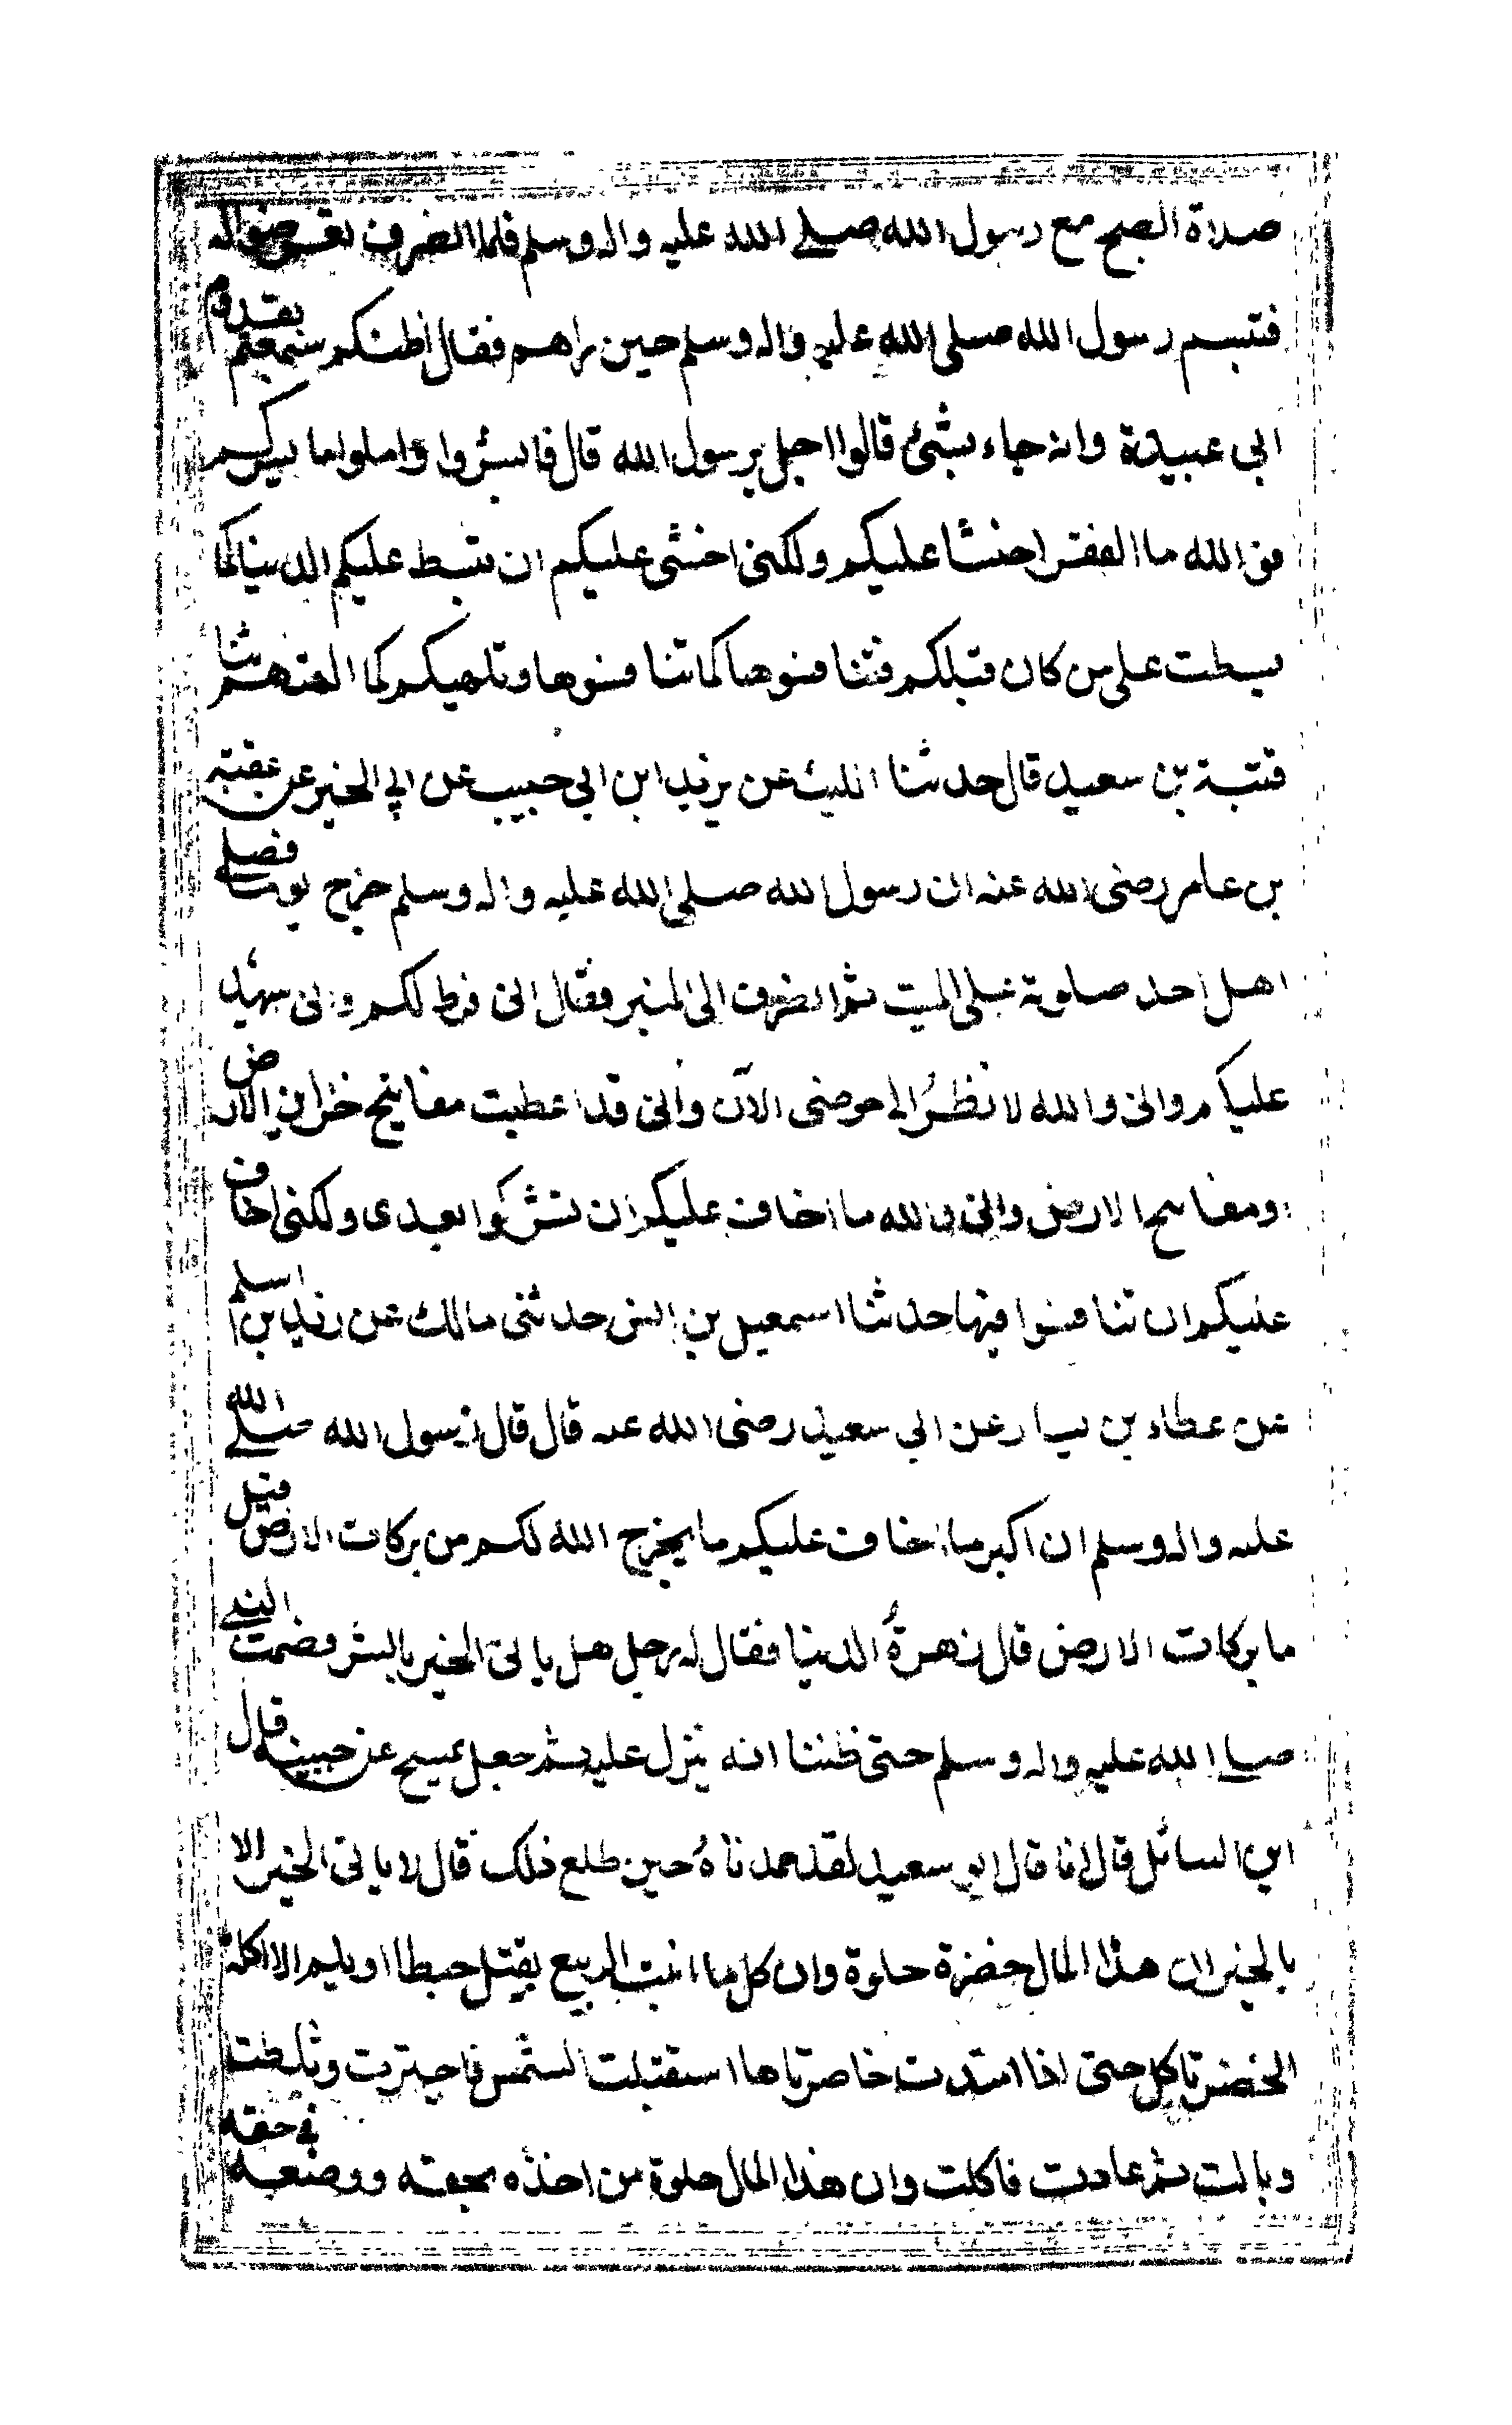 صلاة الصبح مع رسول الله صلى الله عليه واله وسلم فلما انصرف تعرضوا له
فتبسم رسول الله صلى الله عليه واله وسلم حين راهم فقال اظنكم سمعتم بقدوم
ابي عبيدة وانه جاء بشئ قالوا اجل يرسول الله قال فابشروا واملوا ما يسركم
فو الله ما الفقر اخشا عليكم ولكنى اخشى عليكم ان تبسط عليكم الدنيا كما
بسطت على من كان قبلكم فتنا فسوها كما تنا فسوها وتلهيكم كما الهتهم ثنا
قتبة بن سعيد قال حدثنا الليث عن يزيد ابن ابي حبيب عن ابي الخير عن عقبة
بن عامر رضى الله عنه ان رسول الله صلى الله عليه واله وسلم خرج يوما فصلى
اهل احد صلوته على الميت ثم انصرف الى المنبر فقال انى فرط لكم وانى شهيد
عليكم وانى والله لا نظر الى حوضى الآن وانى قد اعطيت مفاتيح خزاين الارض
او مفاتيح الارض وانى والله ما اخاف عليكم ان تشركوا بعدى ولكنى اخاف
عليكم ان تنا فسوا فيها حدثنا اسمعيل بن انس حدثنى مالك عن زيد بن اسلم
عن عطاء بن يسار عن ابي سعيد رضى الله عنه قال قال رسول الله صلى الله
عليه واله وسلم ان اكبر ما اخاف عليكم ما يخرج الله لكم من بركات الارض قيل
ما بركات الارض قال زهرةُ الدنيا فقال له رجل هل ياتى الخير بالشر فصمت النبى
صلى الله عليه واله وسلم حتى ظننا انه ينزل عليه ثم جعل يمسح عن جبينه قال
اين السائل قال انا قال ابو سعيد لقد حمدناهُ حين طلع ذلك قال لا ياتى الخير الا
بالخير ان هذا المال خضرة حلوة وان كل ما انبت الربيع يقتل حبطا او يلم الا اكلة
الخضر تاكل حتى اذا امتدت خاصرتاها استقبلت الشمس فاجترت وثلطت
وبالت ثم عادت فاكلت وان هذا المال حلوة من اخذه بحقه ووضعه فى حقه